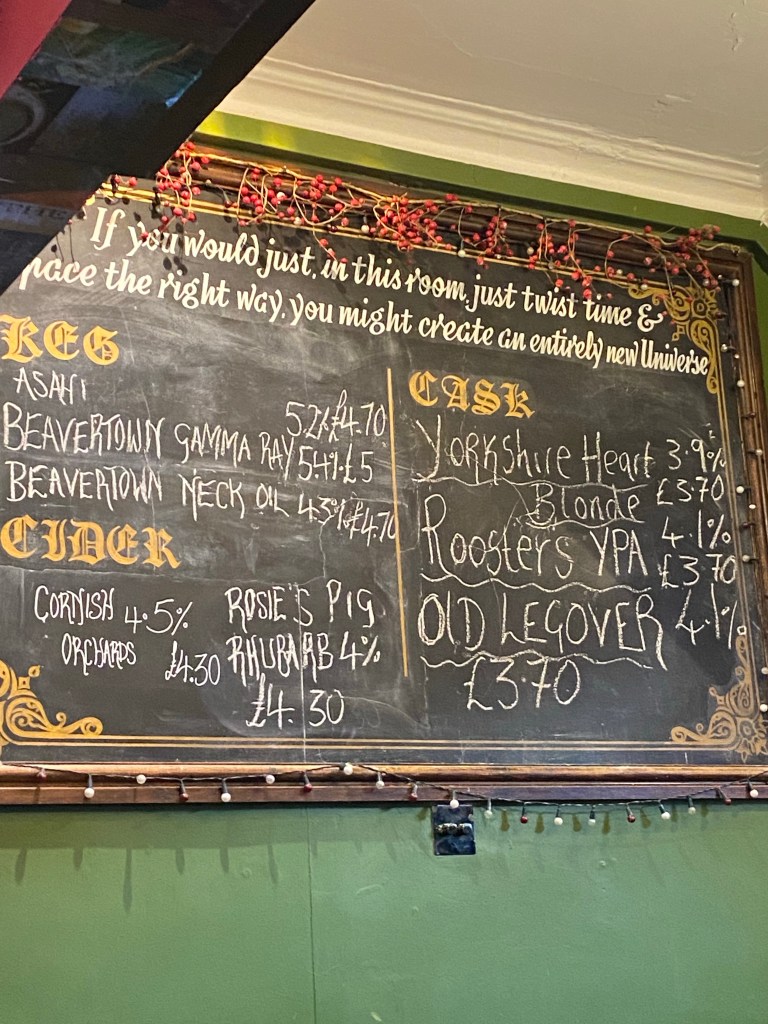 If you would just, in this room, just twist time &
pace the right way, you might create an entirely new Universe
KEG
ASAHI 52% £4.70
BEAVERTOWN GAMMA RAY 54% £5
BEAVERTOWN NECK OIL 43% £4.70
CIDER
CORNISH 4.5%
ORCHARDS £4.30
ROSIE'S PIG
RHUBARB 4%
£4.30
CASK
Yorkshire Heart 3.9%
Blonde £3.70
Roosters YPA 4.1%
£3.70
OLD LEGOVER 4.1%
£3.70